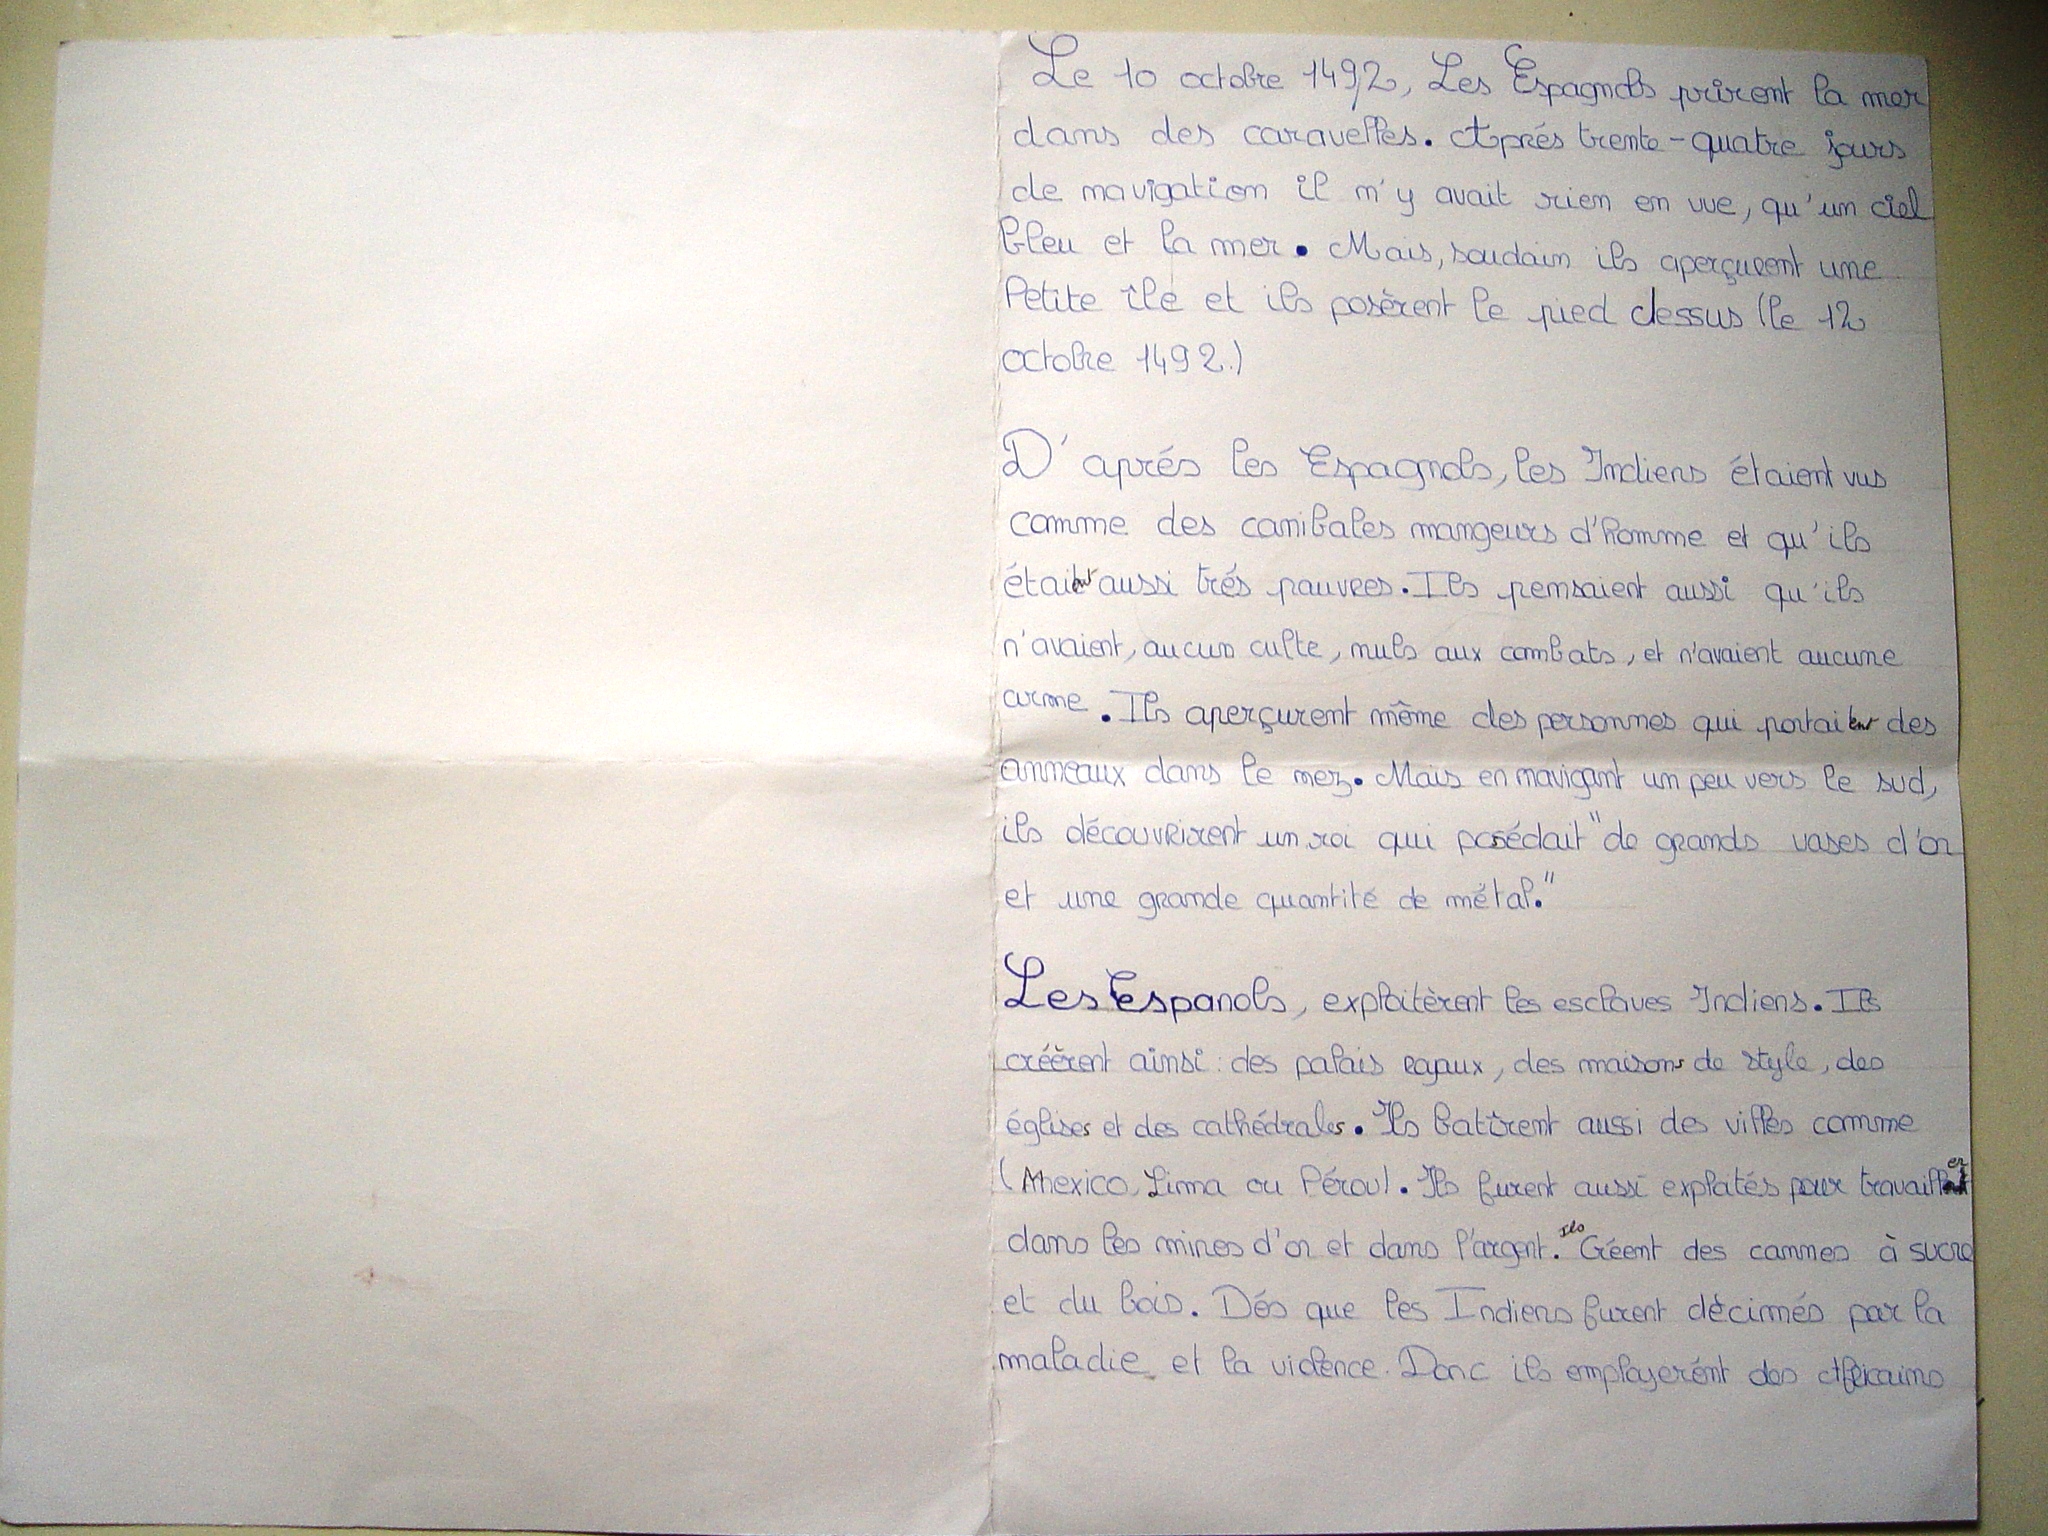 Le 10 octobre 1492, Les Espagnols prirent la mer
dans des caravelles. Aprés trente-quatre jours
de navigation il n'y avait rien en vue, qu'un ciel
bleu et la mer. Mais, soudain ils aperçurent une
Petite île et ils posèrent le pied dessus (le 12
octobre 1492.)
D'aprés les Espagnols, les Indiens étaient vus
comme des canibales mangeurs d'homme et qu'ils
étaient aussi trés pauvres. Ils pensaient aussi qu'ils
n'avaient, aucun culte, nuls aux combats, et n'avaient aucune
arme. Ils aperçurent même des personnes qui portaient des
anneaux dans le nez. Mais en navigant un peu vers le sud,
ils découvrirent un roi qui posédait "de grands vases d'or
et une grande quantité de métal."
Les Espanols, exploitèrent les esclaves Indiens. Ils
créèrent ainsi : des palais royaux, des maisons de style, des
églises et des cathédrales. Ils batîrent aussi des villes comme
(Mexico, Lima ou Pérou). Ils furent aussi exploités pour travailler
dans les mines d'or et dans l'argent. Ils Créent des cannes à sucre
et du bois. Dés que les Indiens furent décimés par la
maladie et la violence. Donc ils employerént des Africains